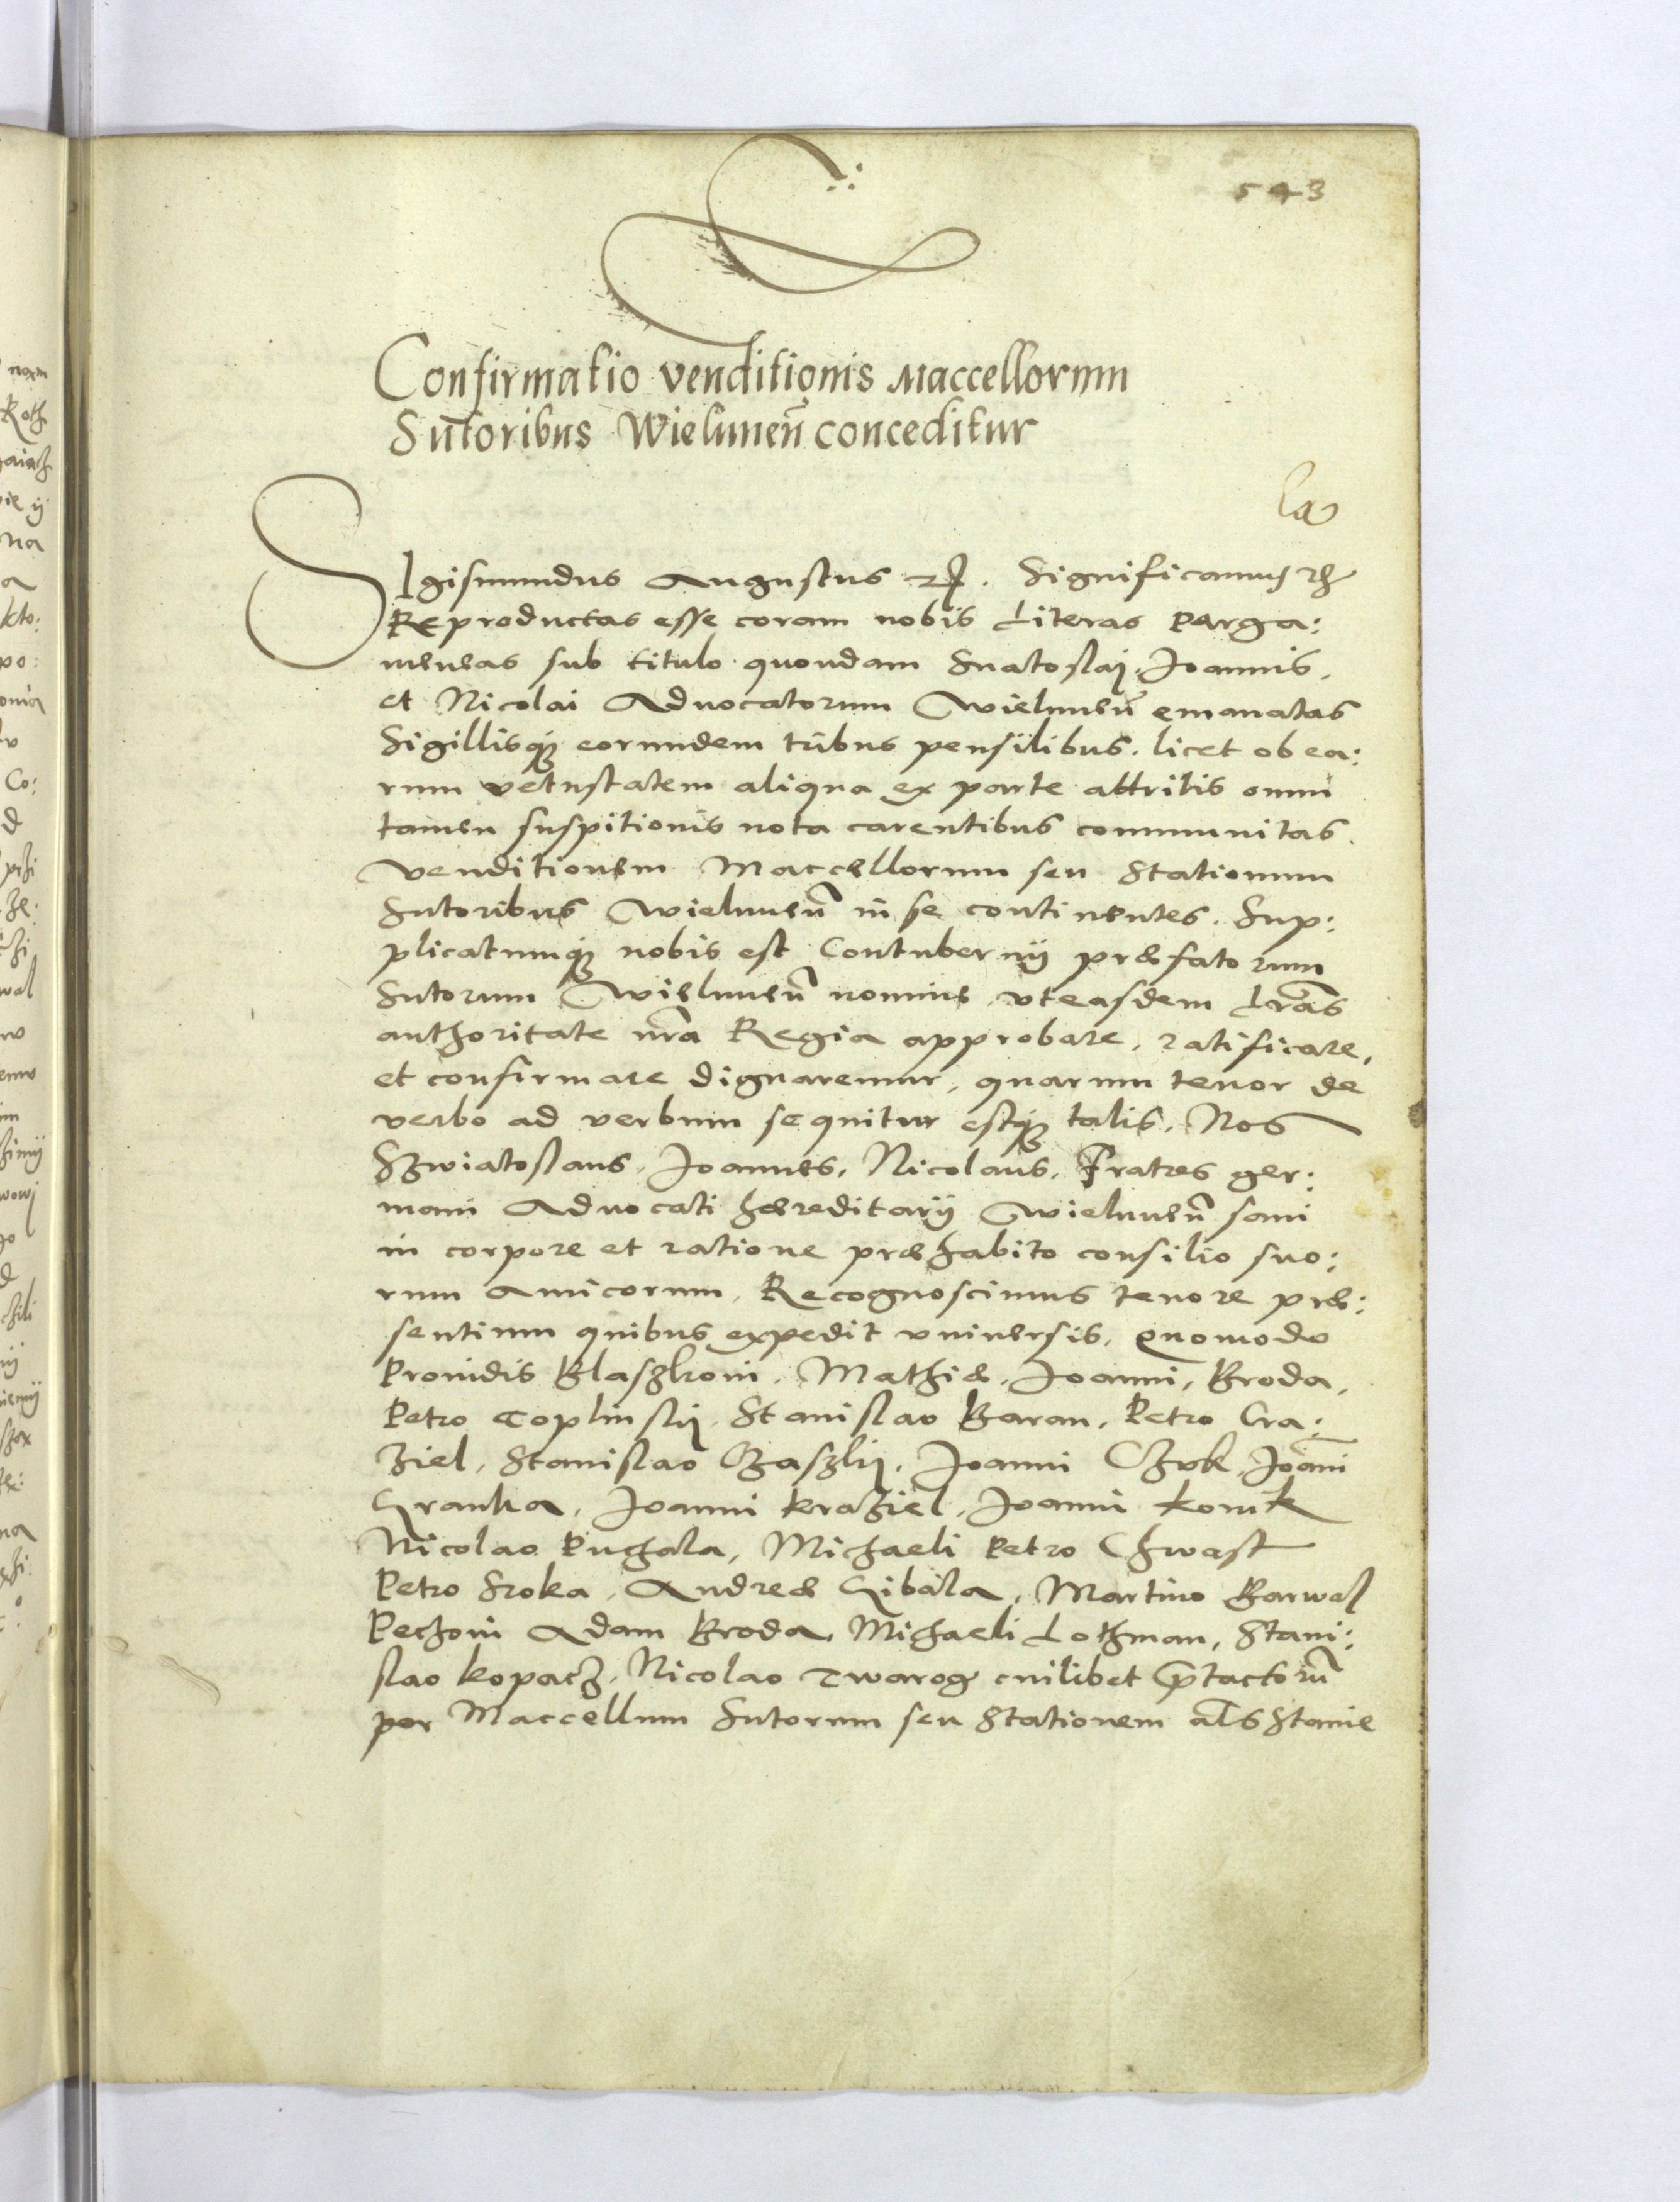 543
Confirmatio venditionis Maccellorum
Sutoribus Wielunen̄ conceditur
Sigismundus Augustus Significamus
Reproductas esse coram nobis Literas Perga:
meneas sub titulo quondam Suatoslaij, Joannis,
et Nicolai Aduocatorum Wielunen̄ emanatas
Sigillisq; eorundem tribus pensilibus, licet ob ea:
rum vetustatem aliqua ex parte attritis omni
tamen suspitionis nota carentibus communitas.
venditionem Maccellorum seu Stationum
Sutoribus Wielunen̄ in se continentes. Sup:
plicatumq; nobis est Contubernij præfatorum
Sutorum Wielunen̄ nomine, vt easdem Lr̄as
authoritate nr̄a Regia approbare, ratificare,
et confirmare dignaremur, quarum tenor de
verbo ad verbum sequitur estq; talis, Nos
Szwiatoslaus, Joannes, Nicolaus, Fratres ger:
mani Aduocati hæreditarij Wielunen̄ sani
in corpore et ratione præhabito consilio suo:
rum Amicorum, Recognoscimus tenore præ:
sentium quibus expedit vniuersis, quomodo
Prouidis Blaszkoni, Mathiæ, Joanni, Broda,
Petro Coplinskij, Stanislao Baran, Petro Cra:
ziel, Stanislao Czaszkij, Joanni Czvk, Joāni
Granka, Joanni Kraziel, Joanni Konik
Nicolao Puchala, Michaeli Petro Chwast
Petro Sroka, Andreæ Gibala, Martino Barwal
Pechoni Adam Broda, Michaeli Lothman, Stani:
slao Kopacz, Nicolao Twarog cuilibet p̄tactorū
per Maccellum Sutorum seu Stationem al̄s Stanie